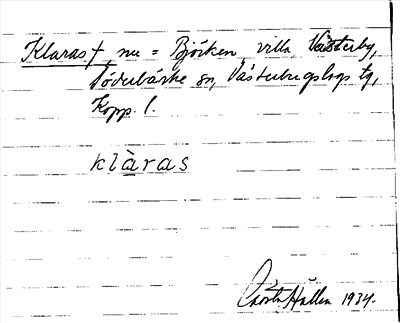 Klaras †, nu = Björken, villa, Västerby,
Söderbärke sn, Västerbergslags tg,
Kopp. l.
klàras
Hallén 1934.